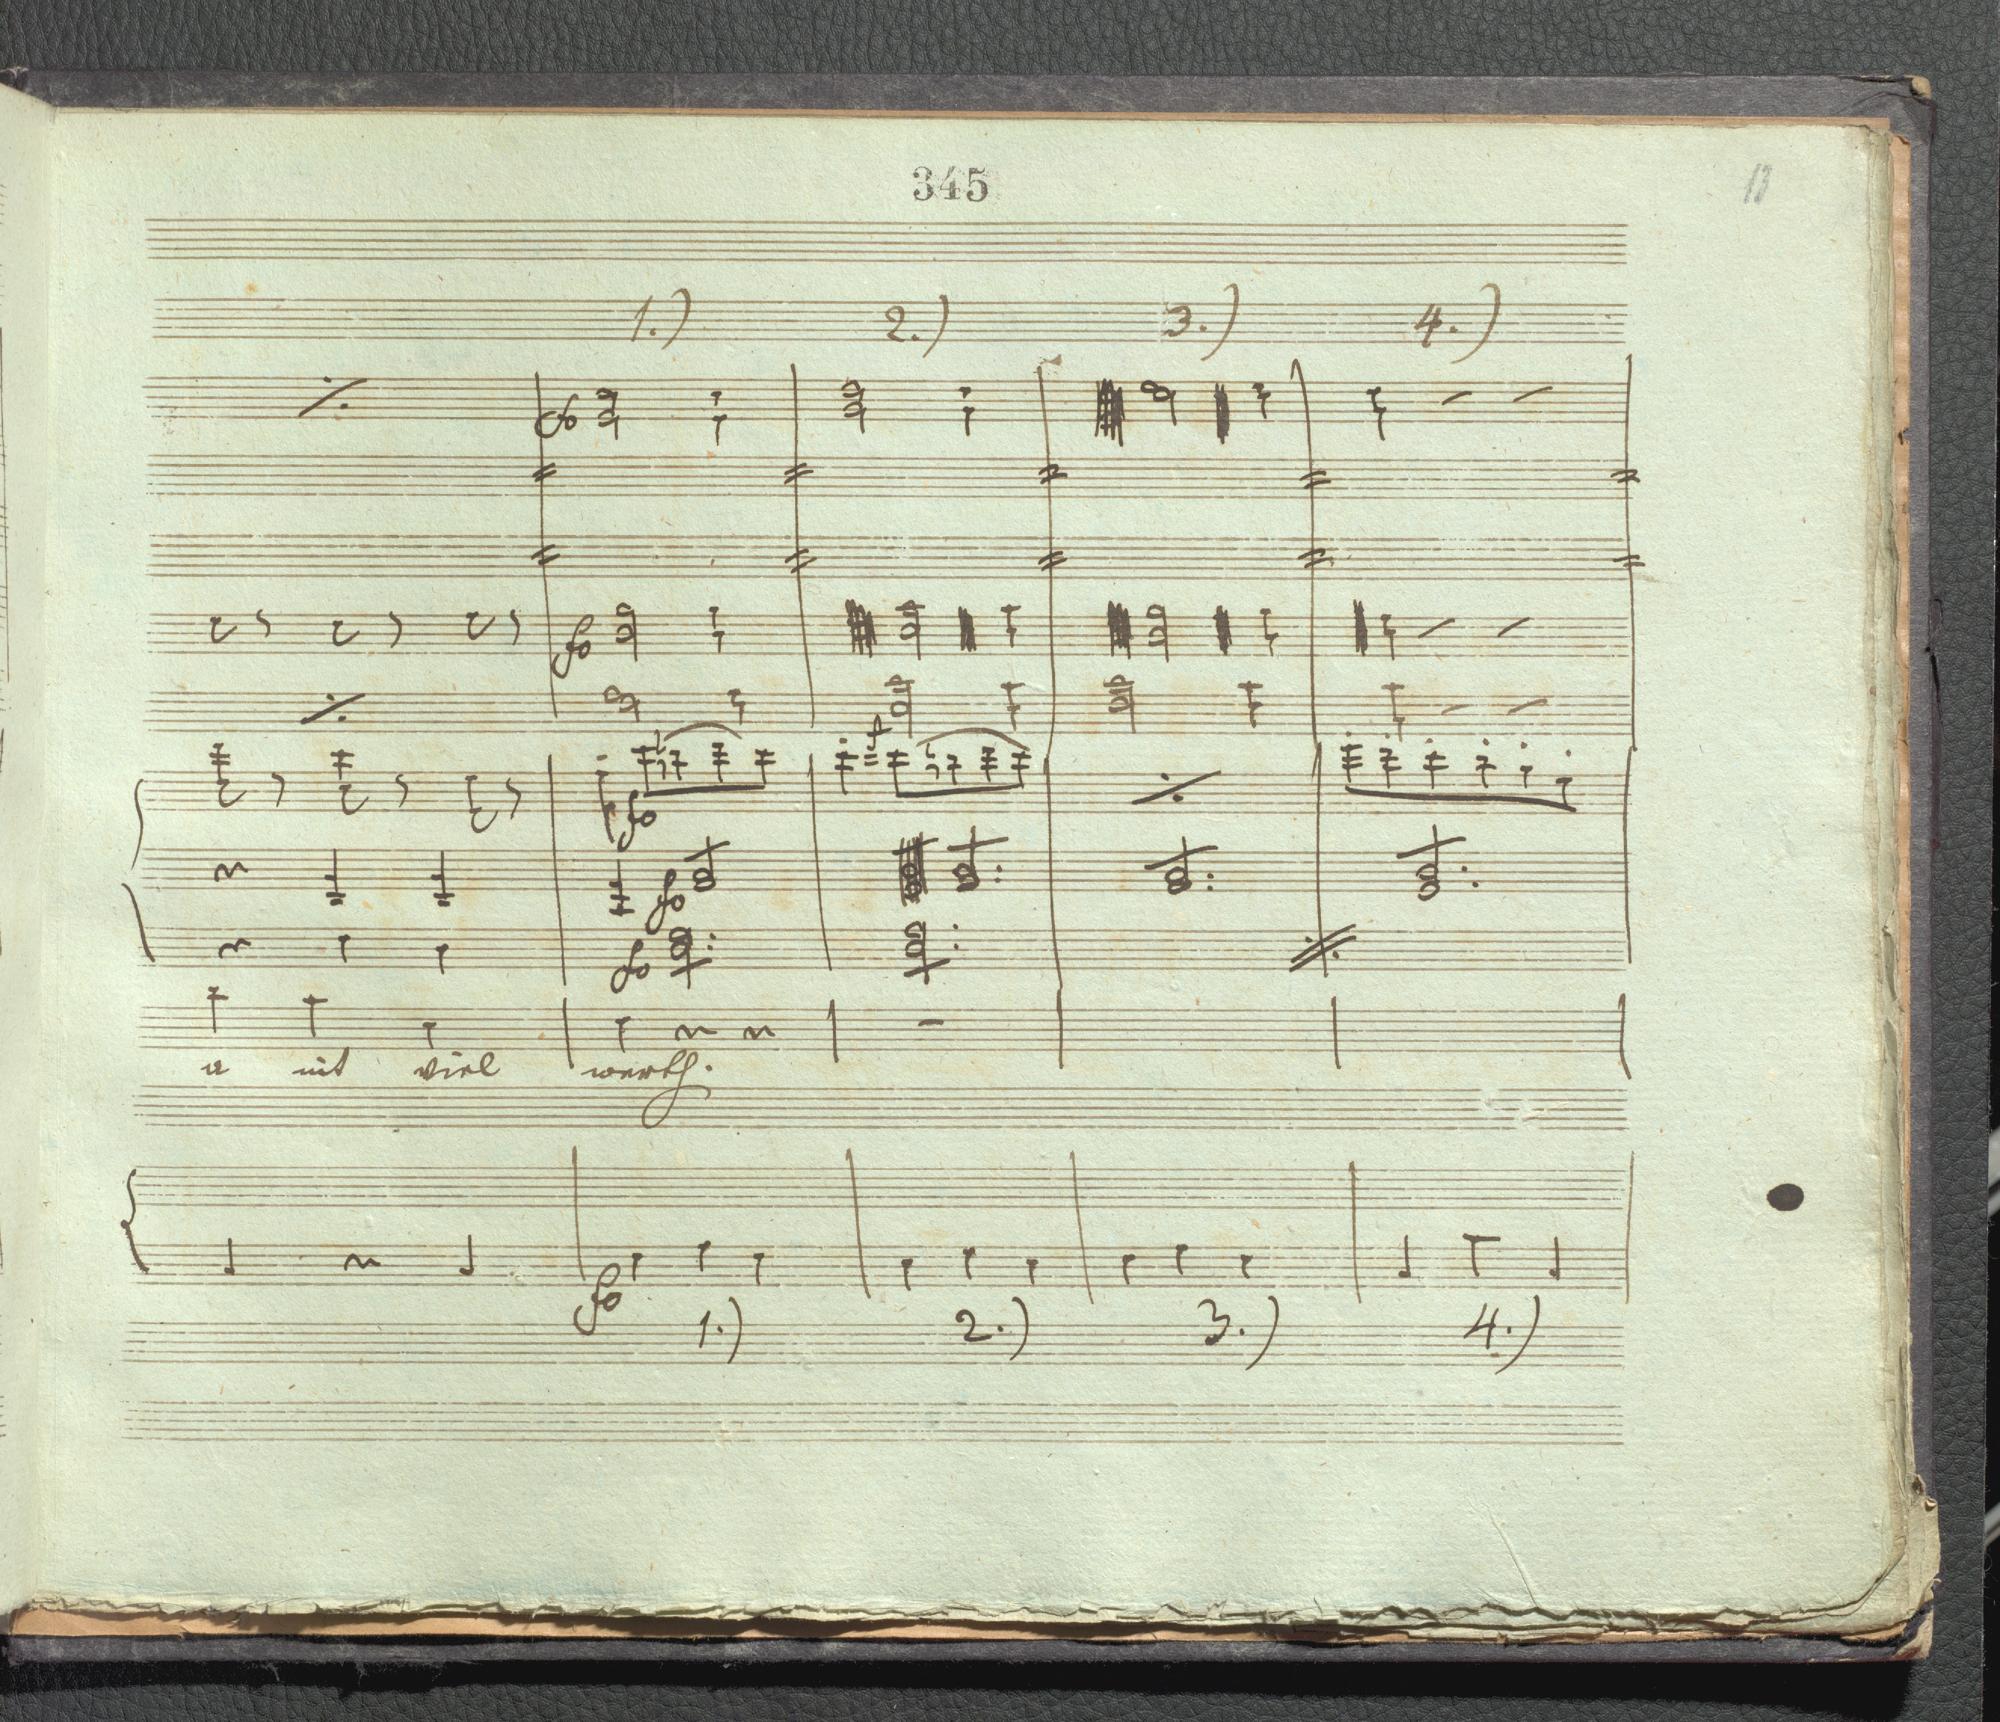 345
13
1.) 2.) 3.) 4.)
fo
fo
fo
fo
fo
a nit viel werth.
fo
1.) 2.) 3.) 4.)